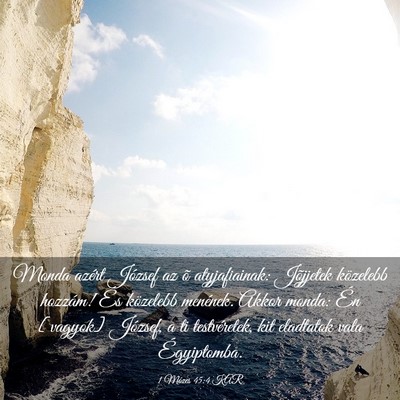 Monda azért József az õ atyjafiainak: Jõjjetek közelebb
hozzám! És közelebb menének. Akkor monda: Én
[vagyok] József, a ti testvéretek, kit eladtatok vala
Égyiptomba.
1 Mózes 45:4 KAR